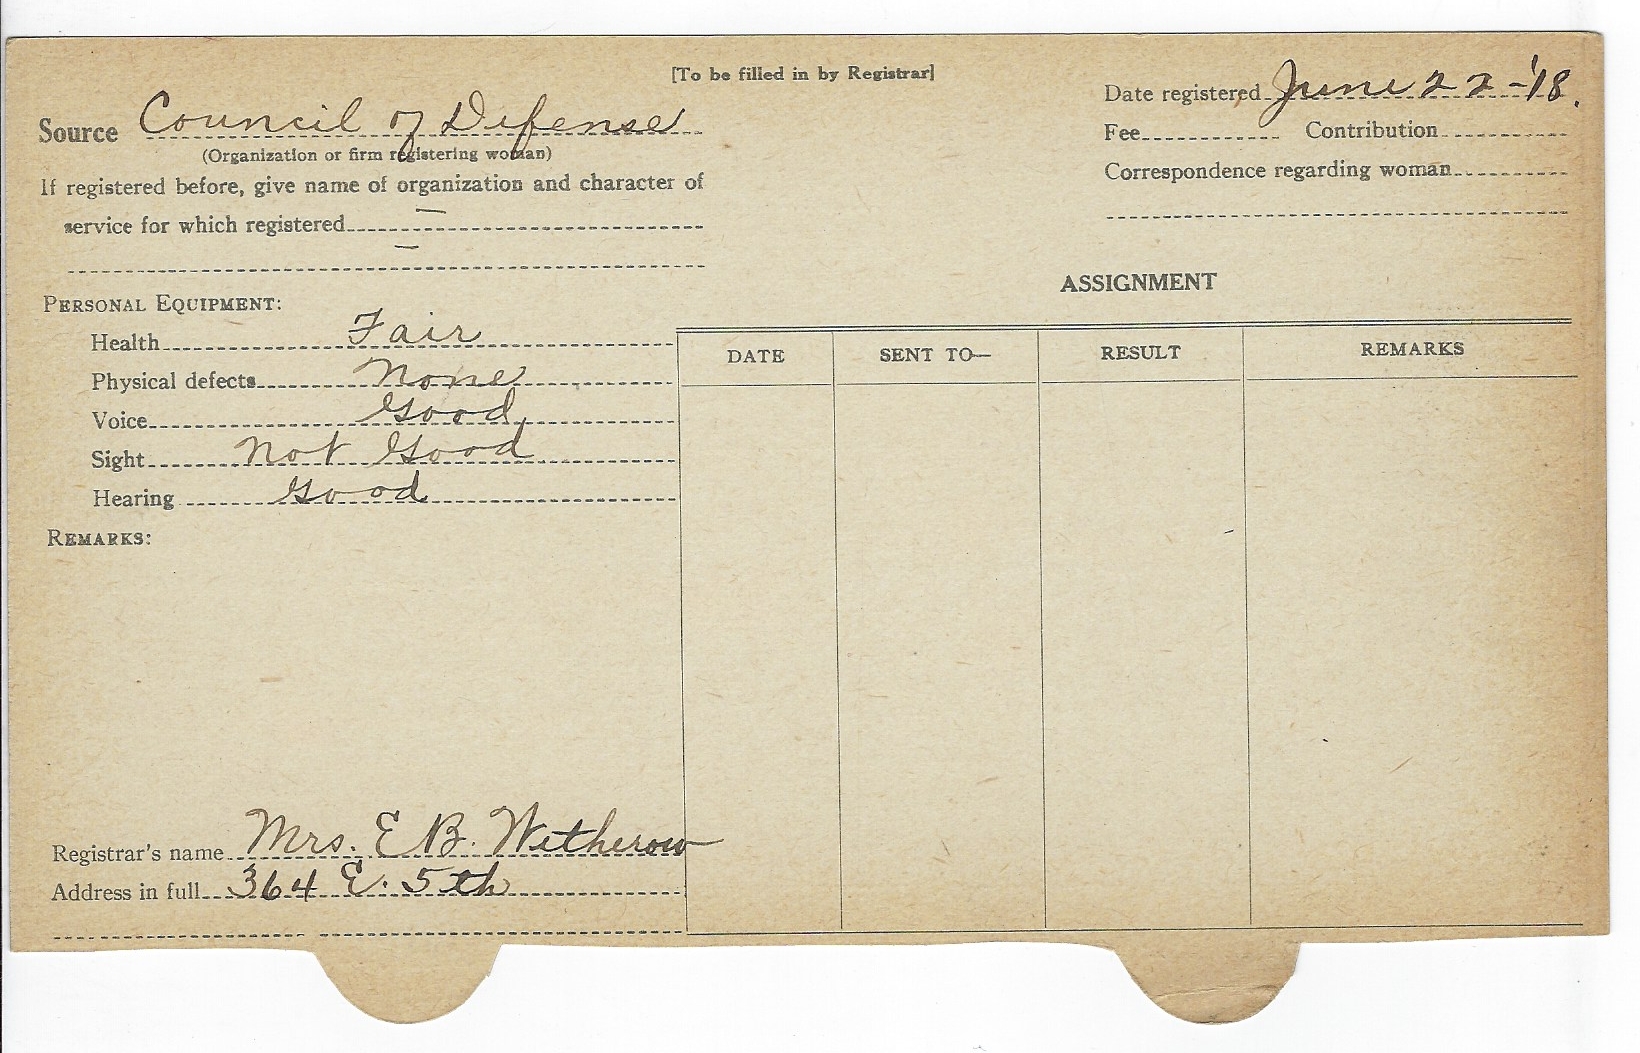 [To be filled in by Registrar]
Source Council of Defense
(Organization or firm registering woman)
If registered before, give name of organization and character of
service for which registered —
—
Date registered June 22-'18.
Fee Contribution
Correspondence regarding woman
PERSONAL EQUIPMENT:
Health Fair
Physical defects None
Voice Good
Sight Not Good
Hearing Good
REMARKS:
Registrar's name Mrs. E B. Witherow
Address in full 364 E. 5th
ASSIGNMENT
DATE SENT TO— RESULT REMARKS